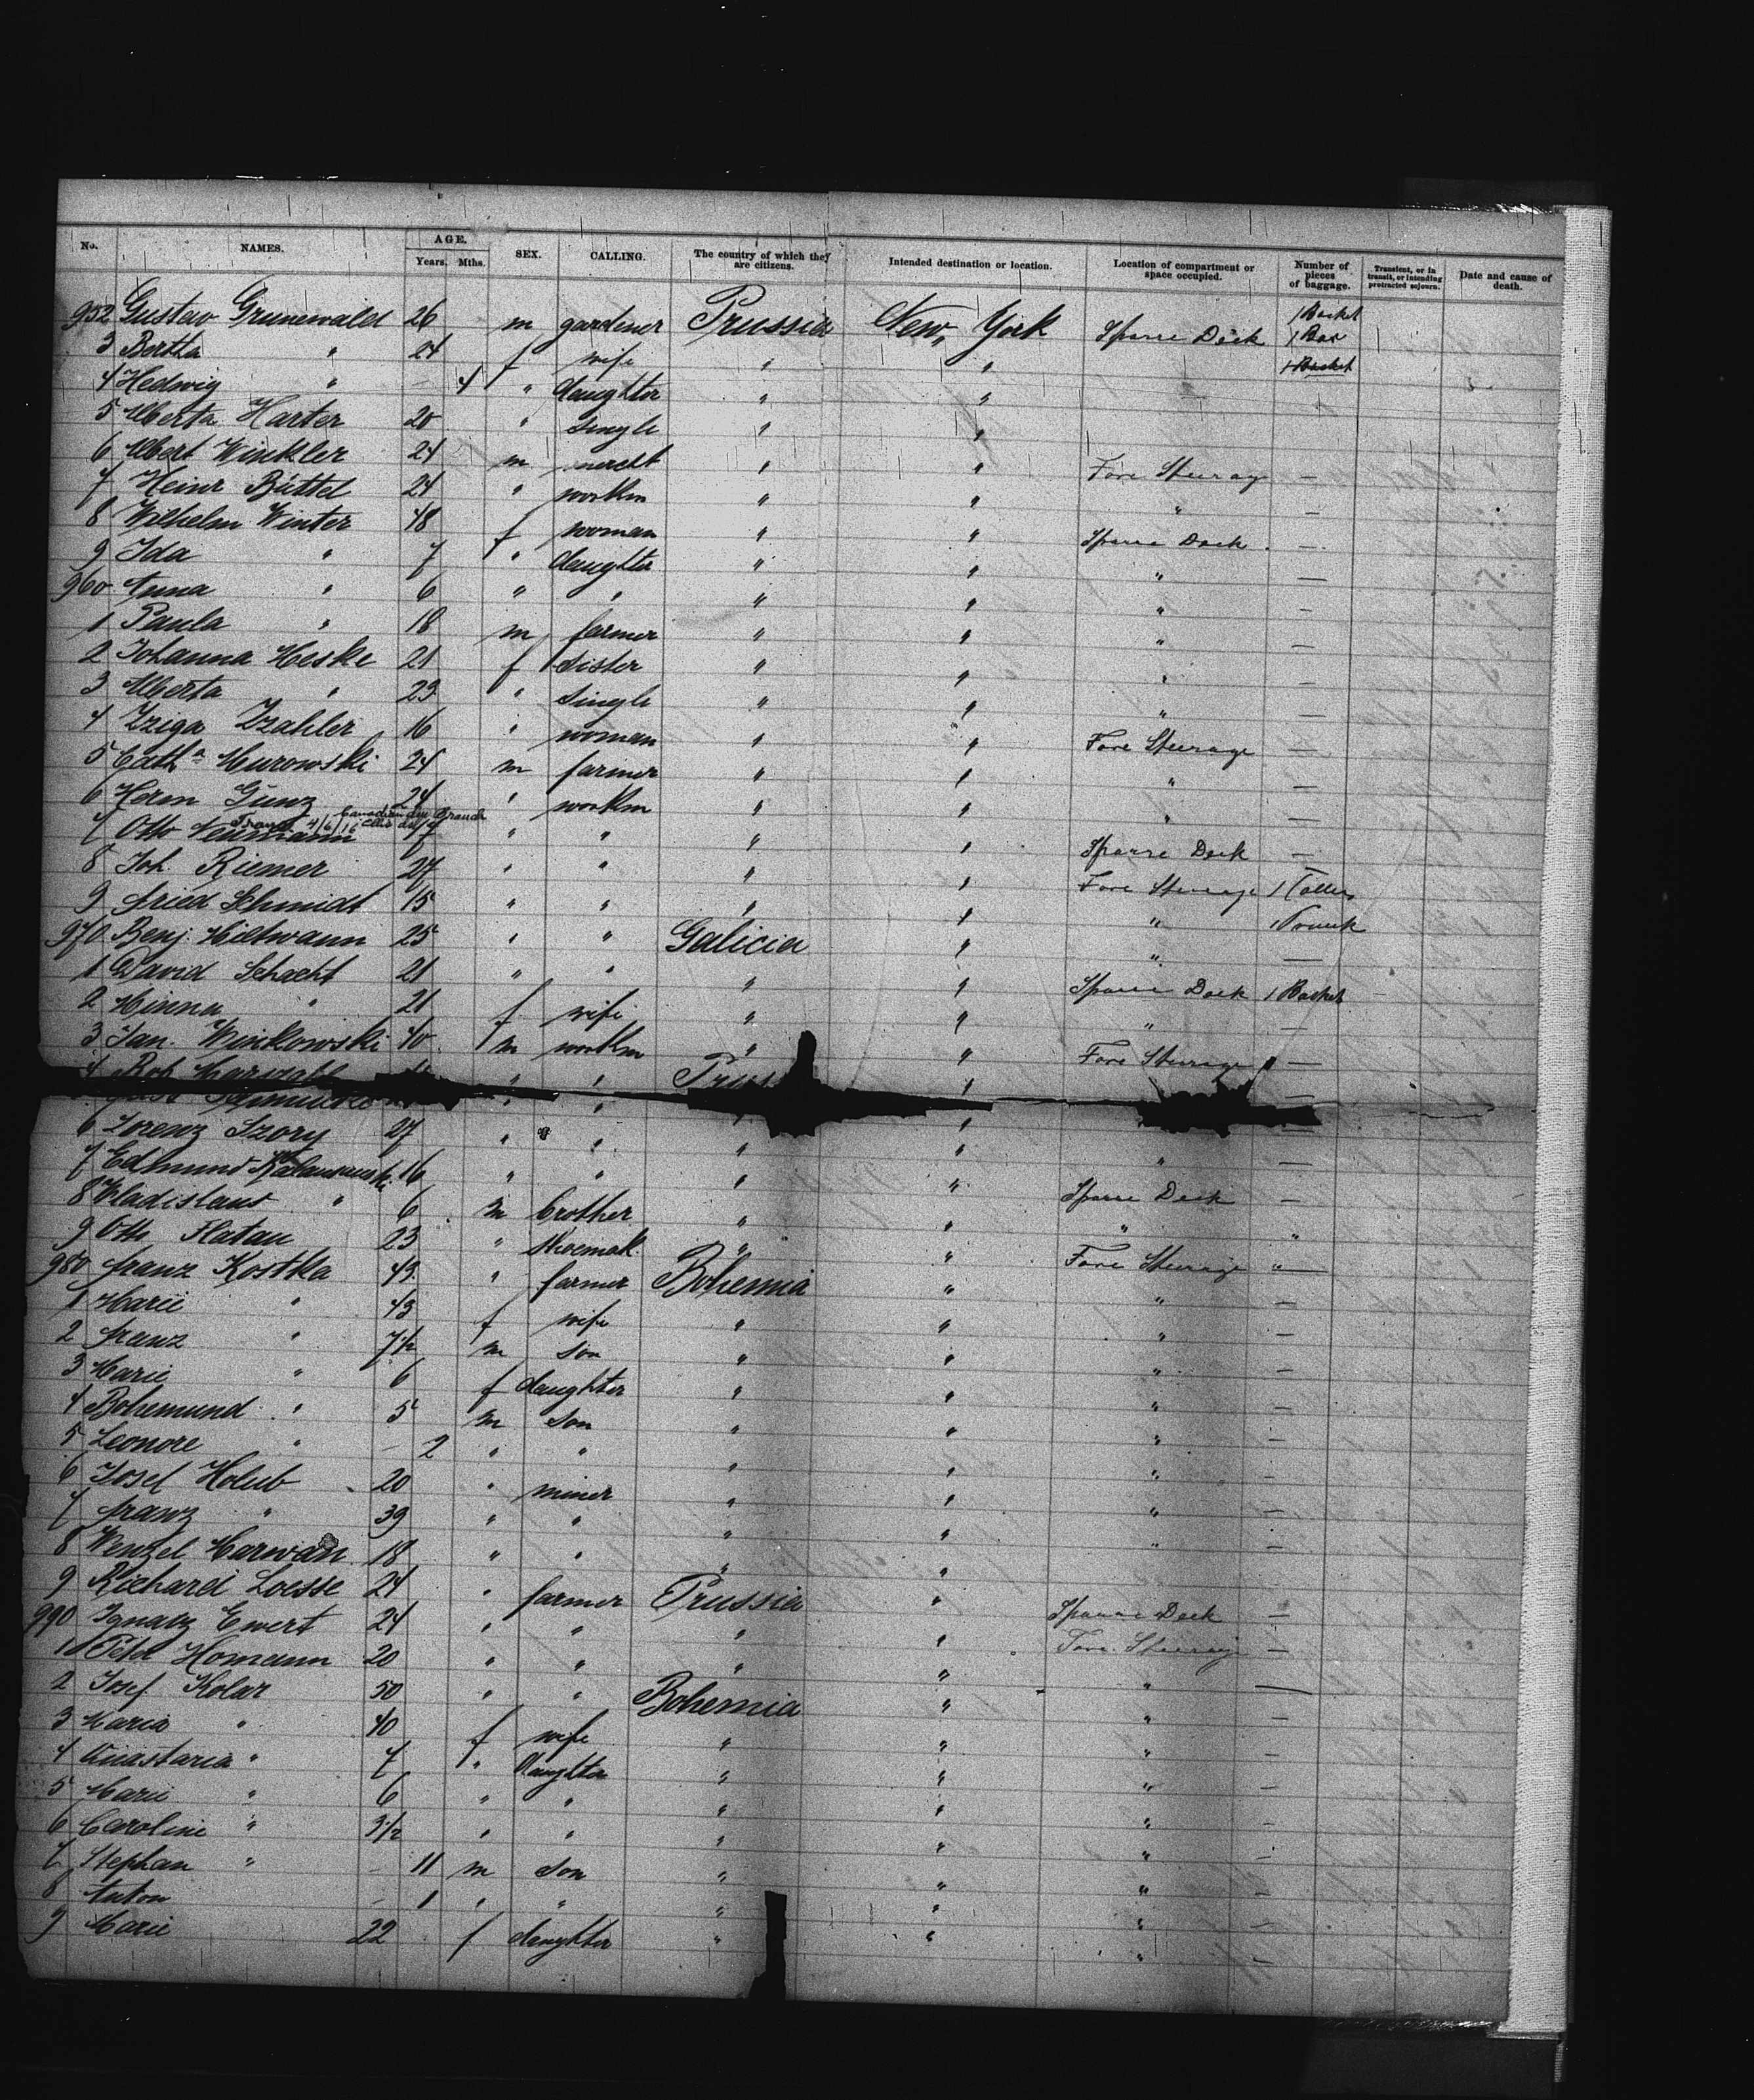 No. NAMES. AGE. Years. Mths. SEX. CALLING. The country of which they are citizens. Intended destination or location. Location of compartment or space occupied. Number of pieces of baggage. Transient, or in transit, or intending protracted sojourn. Date and cause of death.
952 Gustav Grunewald 26 m gardener Prussia New York Sparre Deck 1 Basket 1 Box
3 Bertha " 24 f wife " " 1 Basket
4 Hedwig " - 4 " daughter " "
5 Alberta Harter 20 " single " "
6 Albert Winkler 24 m " " Fore Steerage -
7 Heinr Büttel 24 " workm " " " -
8 Wilhelm Winter 48 f woman " " Sparre Deck -
9 Ida " 7 " daughter " " " -
960 Anna " 6 " " " " " -
1 Paula " 18 m farmer " " " -
2 Johanna Heske 21 f sister " " " -
3 Alberta " 23 " single " " " -
4 16 " woman " " Fore Steerage -
5 Cath^a Murowski 24 m farmer " " " -
6 Herm Günz 24 " workm " " " -
7 Otto Neumann " " " " Sparre Deck -
8 Joh. Riemer 27 " " " " Fore Steerage 1
9 Fried Schmidt 15 " " " " " 1
970 Benj. 25 " " Galicia " " -
1 David Schacht 21 " " " " Sparre Deck 1 Basket
2 Minna " 21 f wife " " " -
3 Jan. Winkowski 40 m workm " " Fore Steerage -
4 Rob " " Pruss "
" "
6 Lorenz Szory 27 " " " " " -
7 Edmund 16 " " " " Sparre Deck -
8 Wladislaus " 6 m brother " " " "
9 Otto Flatau 23 " shoemak. " " Fore Steerage "
980 Franz Kostka 43 " farmer Bohemia " " -
1 Marie " 43 f wife " " " -
2 Franz " 7 1/2 m son " " " -
3 Marie " 6 f daughter " " " -
4 Bohemund " 5 m son " " " -
5 Leonore " - 2 " " " " " -
6 Josef Holub 20 " miner " " " -
7 Franz " 39 " " " " " -
8 Wenzel Harwan 18 " " " "
9 Richard Loesse 24 " farmer Prussia " Sparre Deck -
990 Ignatz Ewert 24 " " " " Fore Steerage -
1 Homann 20 " " " " " -
2 Josef Kolar 50 " " Bohemia " " -
3 Maria " 40 f wife " " " -
4 Anastaria " 7 " daughter " " " -
5 Marie " 6 " " " " " -
6 Caroline " 3 1/2 " " " " " -
7 Stephan " - 11 m son " " " -
8 Anton - 1 " " " " " -
9 Marie 22 f daughter " " " -